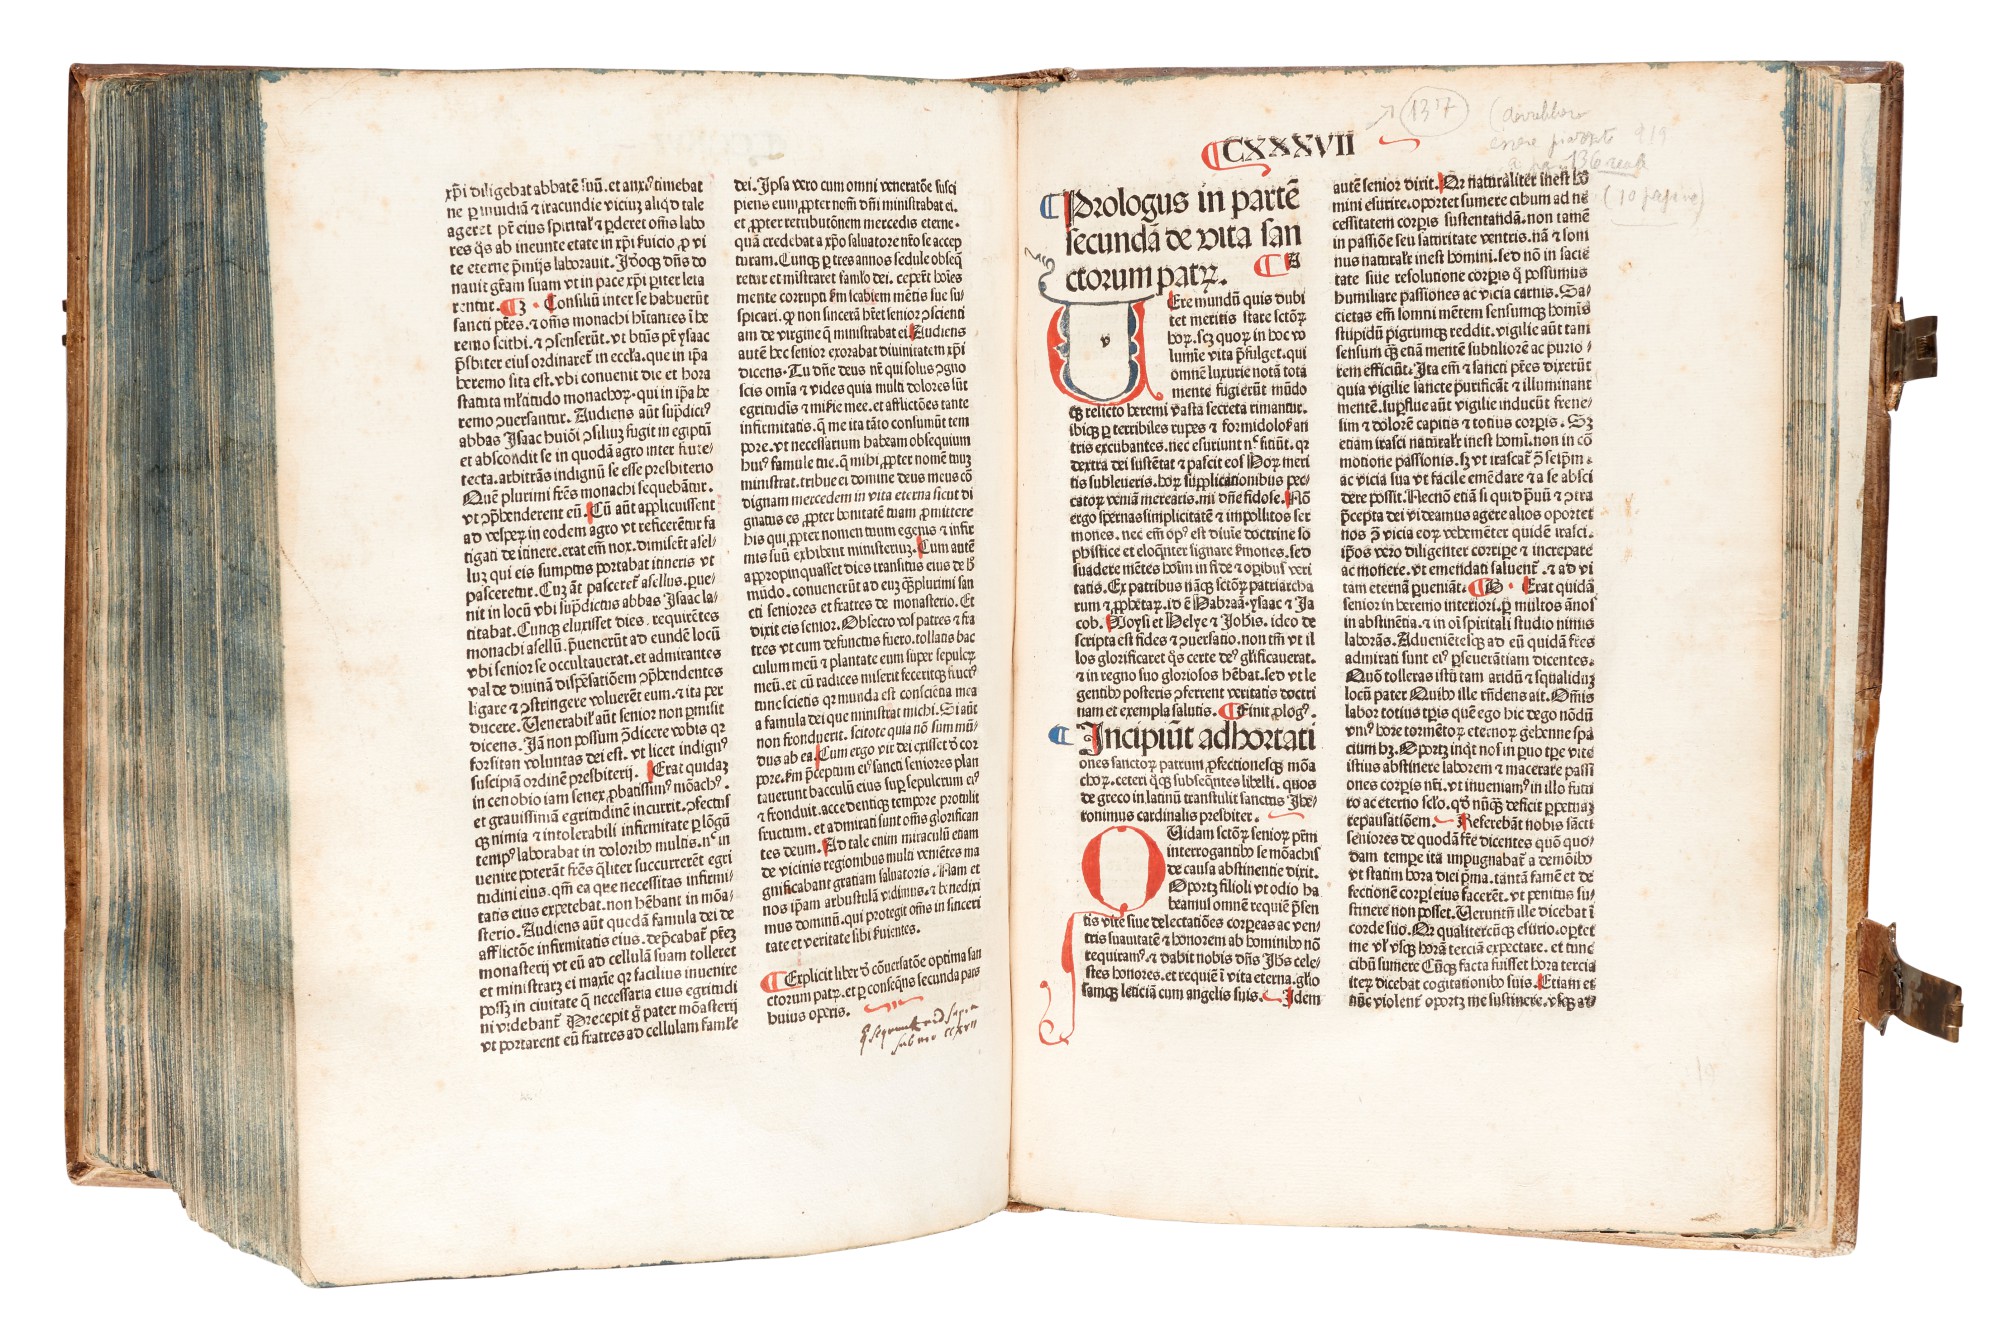 xp̄i diligebat abbatē suū. et anxi⁹ timebat
ne ꝑ inuidiā & iracundie viciuȝ aliqd tale
ageret pꝰ eius spiritalꝰ & ꝑderet om̄s labo
res q̄s ab ineunte etate in xp̄i ẜuicio, ꝓ vi
te eterne p̄mijs laborauit. Idōcqꝫ dn̄s do
nauit gr̄am suam vt in pace xp̄i pariter leta
rentur. Consiliū inter se habuerūt
sancti pr̄es. & om̄s monachi hītantes ī he
remo scithi. & ↄsenserūt. vt btūs pr̄ ysaac
p̄sbiter eius ordinaret̄ in eccl̄ia. que in ip̄a
heremo sita est. vbi conuenit die et hora
statuta ml̄titudo monachoꝝ. qui in ip̄a he
remo ↄuersantur. Audiens aūt sup̄dict⁹
abbas Isaac huiōi ↄsiliuȝ fugit in egiptū
et abscondit se in quodā agro inter frute-
tecta. arbitrās indignū se esse presbiterio
Quē plurimi fr̄es monachi sequebātur.
vt ↄp̄henderent eū. Cū aūt applicuissent
ad vesꝑeꝝ in eodem agro vt reficerētur fa
tigati de itinere. erat em̄ nox. dimiserūt asel-
luȝ qui eis sumptus portabat itineris vt
pasceretur. Cuȝ aūt pasceret̄ asellus. ꝑue-
nit in locū vbi sup̄dictus abbas Isaac la-
titabat. Cunqꝫ eluxisset dies. requirētes
monachi asellū. ꝑuenerūt ad eundē locū
vbi senior se occultauerat. et admirantes
val de diuinā dispēsatiōem ↄp̄hendentes
ligare & ↄstringere voluerēt eum. & ita per
ducere. Venerabil̄ aūt senior non ꝑmisit
dicens. Iā non possum ↄ̄dicere vobis qr
forsitan voluntas dei est. vt licet indign⁹
suscipiā ordinē presbiterij. Erat quidaȝ
in cenobio iam senex, ꝓbatissim⁹ mōach⁹.
et grauissimā egritudinē incurrit. ↄfectus
qꝫ nimia & intolerabili infirmitate ꝑ lōgū
temp⁹ laborabat in dolorib⁹ multis. nec in
uenire poterāt fr̄es q̄liter succurrerēt egri
tudini eius. qm̄ ea que necessitas infirmi-
tatis eius expetebat. non hēbant in mōa-
sterio. Audiens aūt quedā famula dei de
afflictōe infirmitatis eius. dep̄cabat̄ pr̄eȝ
monasterij vt eū ad cellulā suam tolleret
et ministrarȝ ei maxīe qr facilius inuenire
possȝ in ciuitate q̄ necessaria eius egritudi
ni videbant̄. Precepit g̊ pater mōasterij
vt portarent eū fratres ad cellulam famule
dei. Ipsa vero cum omni veneratōe susci
piens eum, ꝓpter nom̄ dn̄i ministrabat ei.
et, ꝓpter retributōnem mercedis eterne.
quā credebat a xp̄o saluatore nr̄o se accep
turam. Cunqꝫ ꝑ tres annos sedule obseq̄
retur et mīstraret famulo dei. ceperūt hoīes
mente corrupti ẜm scabiem mētis sue su-
spicari. ꝙ non sincerā hr̄et senior ↄscienti
am de virgine q̄ ministrabat ei. Audiens
autē hec senior exorabat diuinitatem xp̄i
dicens. Tu dn̄e deus nr̄ qui solus ↄgno
scis omīa & vides quia multi dolores sūt
egritudīs & miẜie mee. et afflictōes tante
infirmitatis. q̄ me ita tāto consumūt tem
pore. vt necessarium habeam obsequium
hui⁹ famule tue. q̄ mihi, ꝓpter nomē tuuȝ
ministrat. tribue ei domine deus meus cō
dignam mercedem in vita eterna sicut di
gnatus es, ꝓpter bonitatē tuam, ꝓmittere
his qui, ꝓpter nomen tuum egenis & infir
mis suū exhibent ministeriuȝ. Cum autē
appropinquasset dies transitus eius de h̄
mūdo. conuenerūt ad euȝ q̄ꝫplurimi san
cti seniores et fratres de monasterio. Et
dixit eis senior. Obsecro vos patres & fra
tres vt cum defunctus fuero. tollatis bac
culum meū & plantate eum super sepulcrȝ
meū. et cū radices miserit feceritqꝫ fruct⁹
tunc scietis qr munda est conscientia mea
a famula dei que ministrat michi. Si aūt
non fronduerit. scitote quia nō sum mū-
dus ab ea. Cum ergo vir dei exisset ↄ̄ cor
pore. ẜm p̄ceptum ei⁹ sancti seniores plan
tauerunt bacculū eius suꝑ sepulcrum ei⁹
& fronduit. accedentiqꝫ tempore protulit
fructum. et admirati sunt om̄s glorifican
tes deum. Ad tale enim miraculū etiam
de vicinis regionibus multi veniētes ma
gnificabant gratiam saluatoris. Nam et
nos ip̄am arbustulā vidimus. & benedixi
mus dominū. qui protegit om̄s in sinceri
tate et veritate sibi ẜuientes.
Explicit liber ↄ̄ cōuersatōe optima san
ctorum patꝝ. et per conseq̄ns secunda pars
huius operis.
CXXXVII
1317
Prologus in partē
secundā de vita san
ctorum patꝝ. A
v Ere mundū quis dubi
tet meritis stare sctōꝝ
hoꝝ. scȝ quoꝝ in hoc vo
lumīe vita p̄fulget. qui
omnē luxurie notā tota
mente fugierūt mūdo
qꝫ relicto heremi vasta secreta rimantur.
ibiqꝫ ꝑ terribiles rupes & formidolosis an
tris excubantes. nec esuriunt nec sitiūt. qr
dextra dei sustētat & pascit eos Hoꝝ meri
tis subleueris. hoꝝ supplicationibus pec-
catoꝝ veniā mercaris. mi dn̄e fidose. Nō
ergo spernas simplicitatē & impolitos ser
mones. nec em̄ op⁹ est diuīe doctrine so
phistice et eloq̄nter signare ẜmones. sed
suadere mētes hoīm in fide & oꝑibus veri
tatis. Ex patribus nāqꝫ sctōꝝ patriarcha
rum & ꝓphetaꝝ. id ē Habraā. ysaac & Ja
cob. Moysi et Helye & Johīs. ideo de
scripta est fides & ↄuersatio. non tm̄ vt il
los glorificaret q̄s certe de⁹ gl̄ificauerat.
& in regno suo gloriosos hēbat. sed vt le
gentibꝰ posteris ↄferrent veritatis doctri
nam et exempla salutis. Finit ꝓlog⁹.
Incipiūt adhortati
ones sanctoꝝ patrum ꝓfectionesqꝫ mōa
choꝝ. ceteri q̄ꝫ subseq̄ntes libelli. quos
de greco in latinū transtulit sanctus Jhe-
ronimus cardinalis presbiter.
QUidam sctōꝝ senioꝝ pr̄m
interrogantibꝰ se mōachis
de causa abstinentie dixit.
Oportȝ filioli vt odio ha
beamus omnē requiē p̄sen
tis vite siue delectatiōes corꝑeas ac ven-
tris suauitatē & honorem ab hominibꝰ nō
requiram⁹. & dabit nobis dn̄s Jh̄s cele-
stes honores. et requiē ī vita eterna. glo
samqꝫ leticiā cum angelis suis. Idem
autē senior dixit. Qr naturaliter inest ho
mini esurire. oportet sumere cibum ad ne
cessitatem corꝑis sustentandā. non tamē
in passiōe seu saturitate ventris. nā & som
nus naturalr̄ inest homini. sed nō in sacie
tate siue resolutione corꝑis q̄ possumus
humiliare passiones ac vicia carnis. Sa-
cietas em̄ somni mētem sensumqꝫ homīs
stupidū pigrumqꝫ reddit. vigilie aūt tam
sensum q̄ꝫ etiā mentē subtiliorē ac purio-
rem efficiūt. Ita em̄ & sancti pr̄es dixerūt
quia vigilie sancte purificāt & illuminant
mentē. suꝑflue aūt vigilie inducūt frene-
sim & dolorē capitis & totius corꝑis. Sȝ
etiam irasci naturalr̄ inest homī. non in cō
motione passionis. sȝ vt irascat̄ p̄ seip̄m.
ac vicia sua vt facile emēdare & a se absci
dere possit. Necnō etiā si quid puū & ↄtra
p̄cepta dei videamus agere alios oportet
nos p̄ vicia eoꝝ vehemēter quidē irasci.
ip̄os vero diligenter corriꝑe & increpare
ac monere. vt emendati saluent̄. & ad vi
tam eternā ꝑueniāt. B Erat quidā
senior in heremo interiori. ꝑ multos ānos
in abstinētia. & in oī spiritali studio nimis
laborās. Aduenientesqꝫ ad eū quidā fr̄es
admirati sunt ei⁹ ꝑseuerātiam dicentes.
Quō tolleras istū tam aridū & squaliduȝ
locū pater Quibꝰ ille rn̄dens ait. Om̄is
labor totius tꝑis quē ego hic dego nōdū
vni⁹ hore tormētoꝝ eternoꝝ gehenne spa
cium hȝ. Oportȝ inq̄t nos in puo tꝑe vite
istius abstinere laborem & macerare passi
ones corꝑis nr̄i. vt inueniam⁹ in illo futu
ro ac eterno sclō. q̄d nūqꝫ deficit ꝑpetuaȝ
repausatiōem. Referebāt nobis sancti
seniores de quodā fr̄e dicentes quō quo-
dam tempe ita impugnabat̄ a demōibꝰ
vt statim hora diei p̄ma. tantā famē et de
fectionē corꝑi eius facerēt. vt penitus su-
stinere non posset. Veruntn̄ ille dicebat ī
corde suo. Qr qualitercūqꝫ esurio. oportet
me vl̄ vsqꝫ horā terciā expectare. et tunc
cibū sumere Cūqꝫ facta fuisset hora tercia
iteꝝ dicebat cogitationibꝰ suis. Etiam et
nūc violent̄ oportȝ me sustinere. vsqꝫ ad